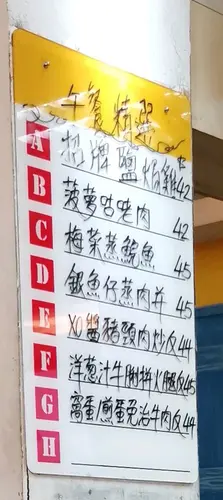 午餐精選
A 招牌鹽焗雞 42
B 菠蘿咕咾肉 42
C 梅菜蒸鯇魚 45
D 銀魚仔蒸肉并 45
E XO醬豬頸肉炒反 44
F 洋葱汁牛脷拼火腿反 45
G 窩蛋煎蛋免治牛肉反 44
H